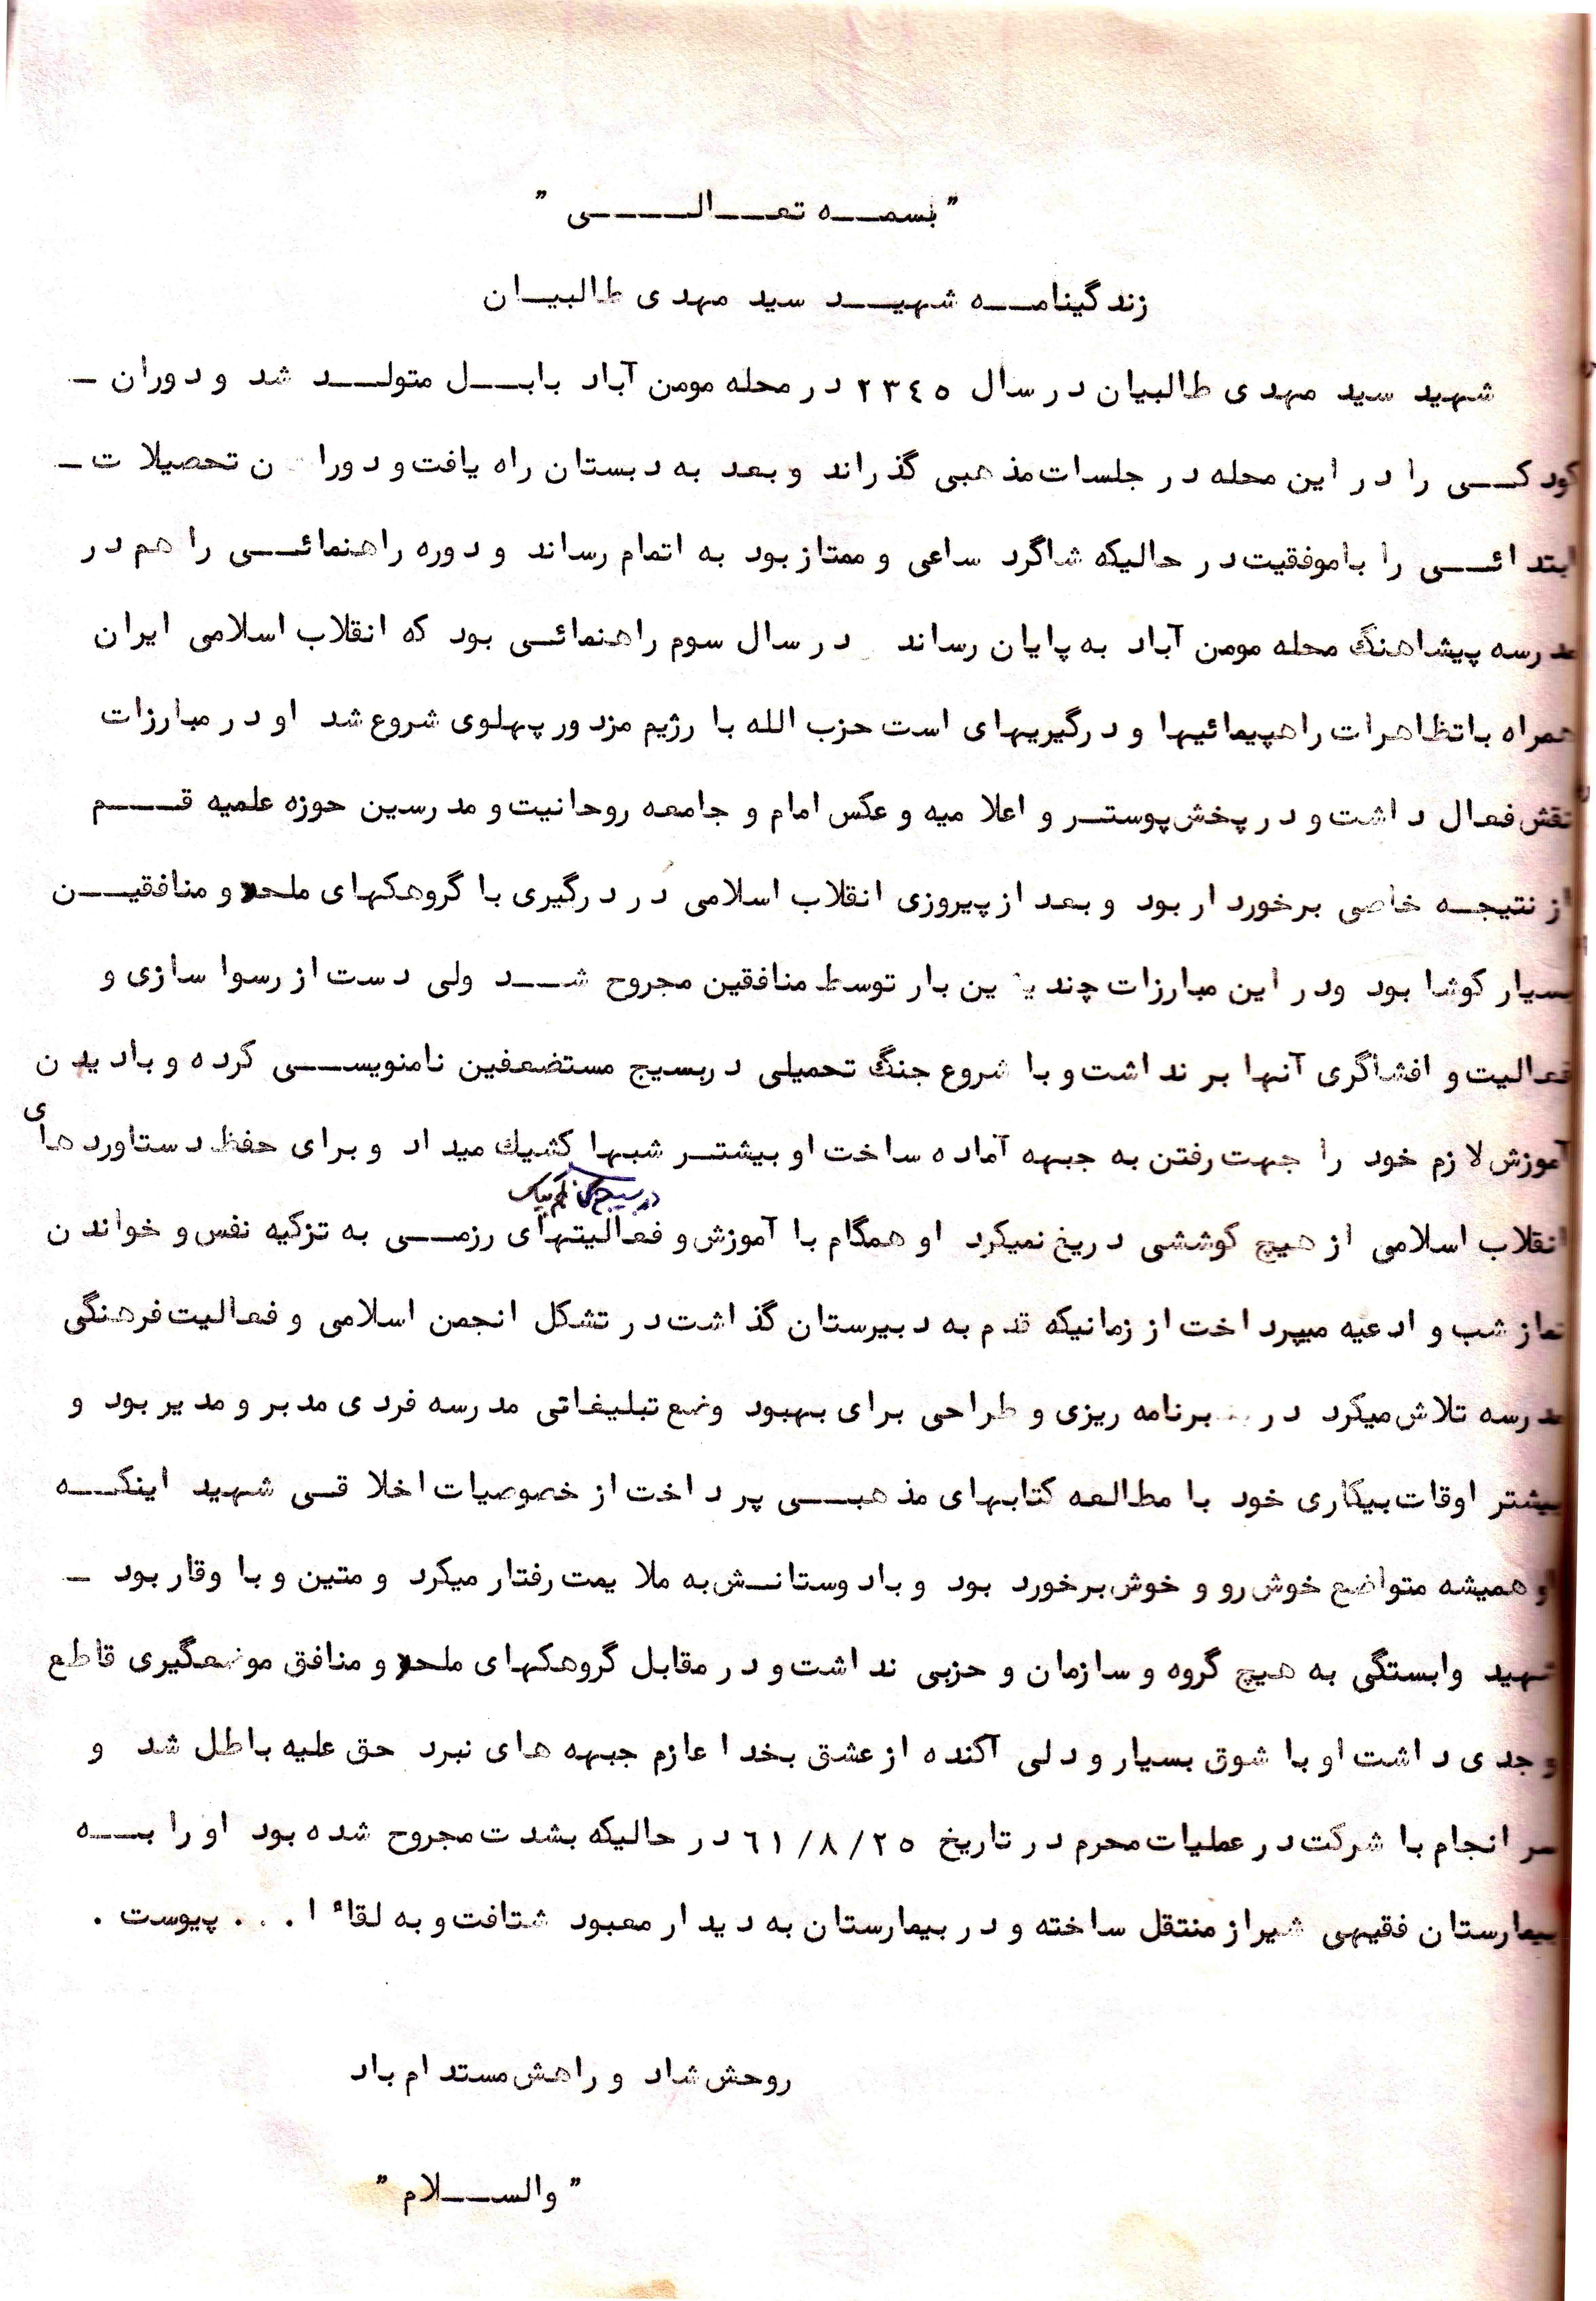 " بسمه تعالی "
زندگینامه شهید سید مهدی طالبیان
شهید سید مهدی طالبیان در سال ۲۳٤٥ در محله مومن آباد بابل متولد شد و دوران ـ
کودکی را در این محله در جلسات مذهبی گذراند و بعد به دبستان راه یافت و دورا ن تحصیلات ـ
ابتدائی را باموفقیت در حالیکه شاگرد ساعی و ممتاز بود به اتمام رساند و دوره راهنمائی را هم در
مدرسه پیشاهنگ محله مومن آباد به پایان رساند در سال سوم راهنمائی بود که انقلاب اسلامی ایران
همراه باتظاهرات راهپیمائیها و درگیریهای است حزب الله با رژیم مزدور پهلوی شروع شد او در مبارزات
نقش فعال داشت و در پخش پوستر و اعلامیه و عکس امام و جامعه روحانیت و مدرسین حوزه علمیه قم
از نتیجه خاصی برخوردار بود و بعد از پیروزی انقلاب اسلامی در درگیری با گروهکهای ملحد و منافقین
بسیار کوشا بود ودر این مبارزات چندین بار توسط منافقین مجروح شد ولی دست از رسوا سازی و
فعالیت و افشاگری آنها برنداشت و با شروع جنگ تحمیلی دربسیج مستضعفین نامنویسی کرده و بادیدن
آموزش لازم خود را جهت رفتن به جبهه آماده ساخت او بیشتر شبها کشیک میداد و برای حفظ دستاوردهای
در بسیج
انقلاب اسلامی از هیچ کوششی دریغ نمیکرد او همگام با آموزش و فعالیتهای رزمی به تزکیه نفس و خواندن
نماز شب و ادعیه میپرداخت از زمانیکه قدم به دبیرستان گذاشت در تشکل انجمن اسلامی و فعالیت فرهنگی
مدرسه تلاش میکرد در برنامه ریزی و طراحی برای بهبود وضع تبلیغاتی مدرسه فردی مدبر و مدیر بود و
بیشتر اوقات بیکاری خود با مطالعه کتابهای مذهبی پرداخت از خصوصیات اخلاقی شهید اینکه
او همیشه متواضع خوش رو و خوش برخورد بود و بادوستانش به ملایمت رفتار میکرد و متین و با وقار بود ـ
شهید وابستگی به هیچ گروه و سازمان و حزبی نداشت و در مقابل گروهکهای ملحد و منافق موضعگیری قاطع
و جدی داشت او با شوق بسیار و دلی آکنده از عشق بخدا عازم جبهه های نبرد حق علیه باطل شد و
سرانجام با شرکت در عملیات محرم در تاریخ ٦١/٨/٢٥ در حالیکه بشدت مجروح شده بود او را به
بیمارستان فقیهی شیراز منتقل ساخته و در بیمارستان به دیدار معبود شتافت و به لقاء ا . . . پیوست .
روحش شاد و راهش مستدام باد
" والسلام "